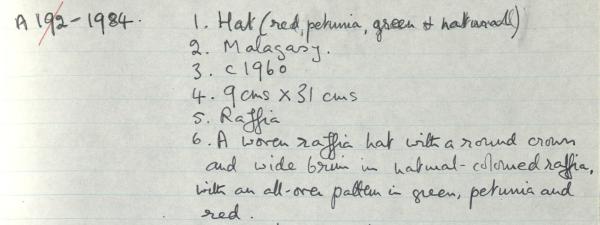 A 192-1984. 1. Hat (red, petunia, green & natural)
2. Malagasy.
3. c 1960
4. 9 cms x 31 cms
5. Raffia
6. A woven raffia hat with a round crown
and wide brim in natural-coloured raffia,
with an all-over pattern in green, petunia and
red.